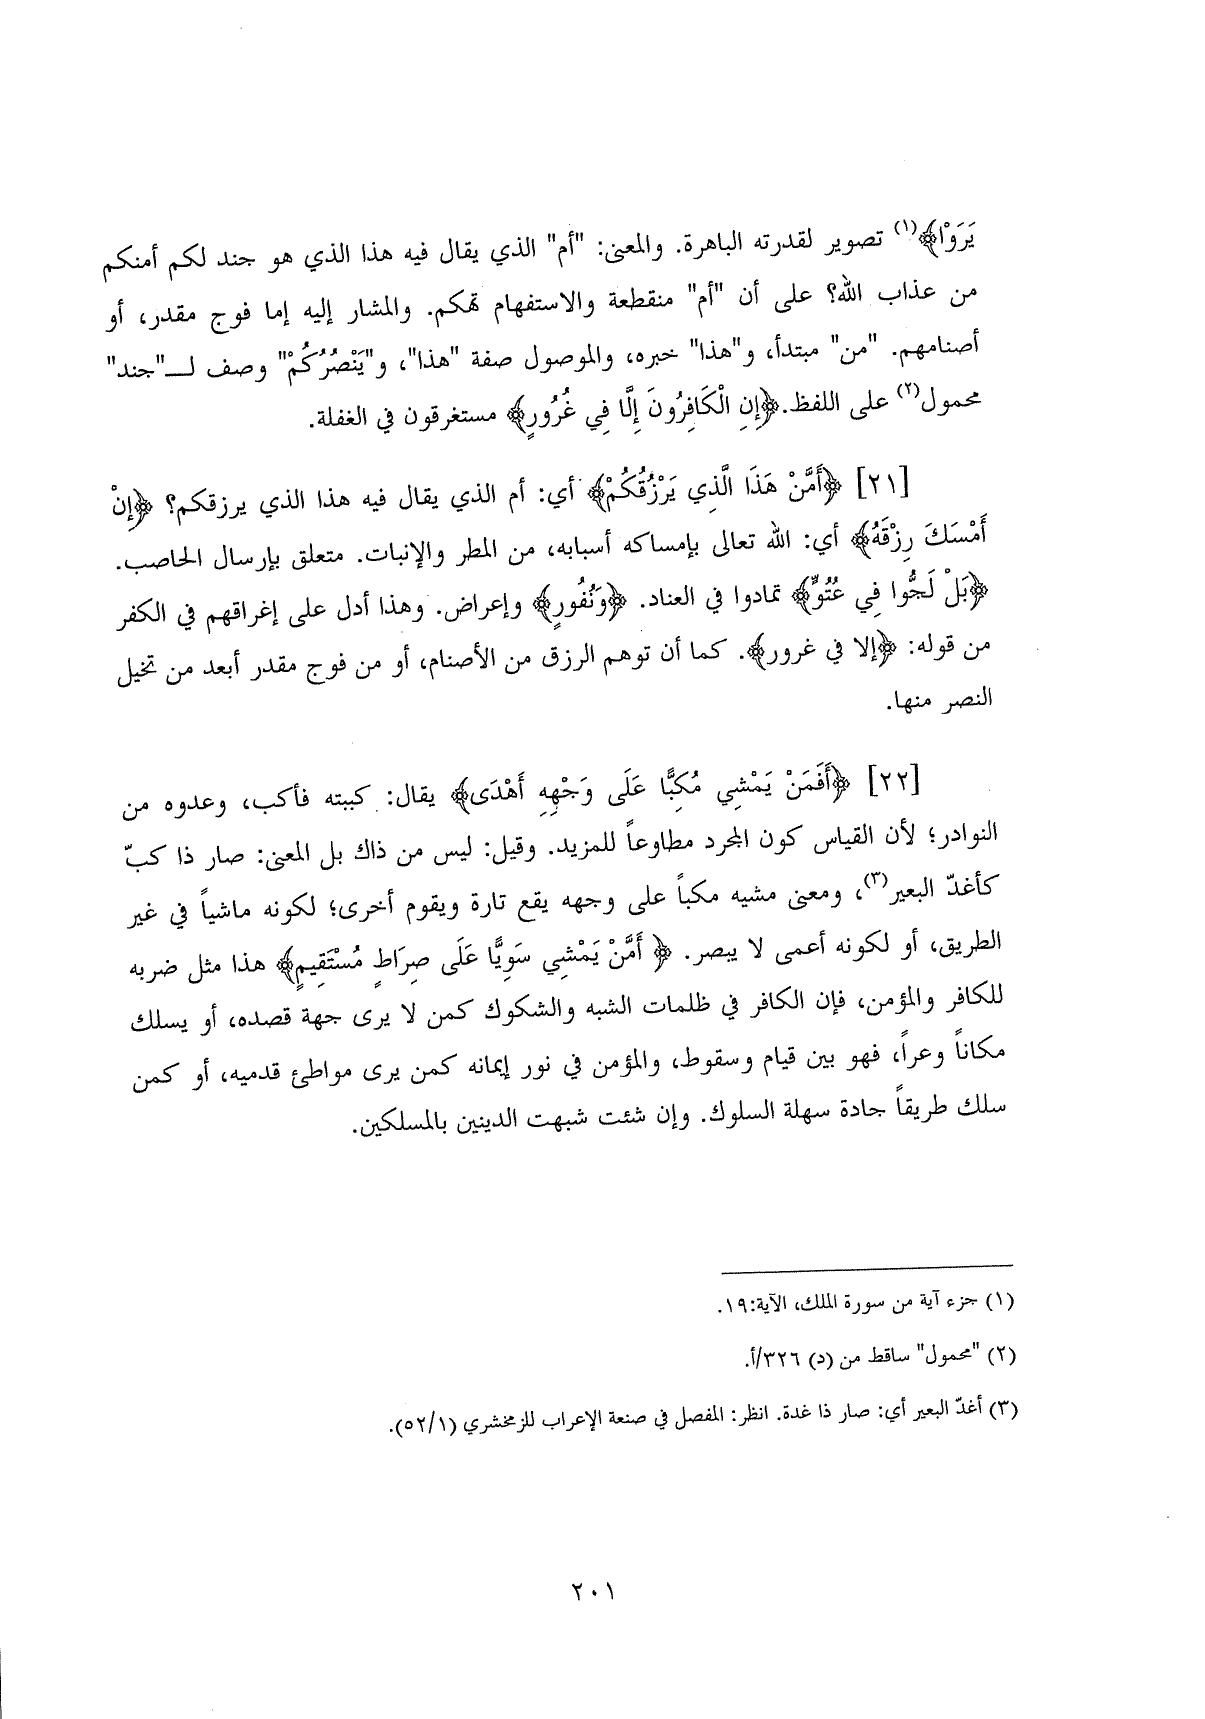 يَرَوْا﴾(١) تصوير لقدرته الباهرة. والمعنى: "أم" الذي يقال فيه هذا الذي هو جند لكم أمنكم
من عذاب الله؟ على أن "أم" منقطعة والاستفهام تهكم. والمشار إليه إما فوج مقدر، أو
أصنامهم. "من" مبتدأ، و"هذا" خبره، والموصول صفة "هذا"، و"يَنْصُرُكُمْ" وصف لـــ"جند"
محمول(٢) على اللفظ.﴿إِنِ الْكَافِرُونَ إِلَّا فِي غُرُورٍ﴾ مستغرقون في الغفلة.
[٢١] ﴿أَمَّنْ هَذَا الَّذِي يَرْزُقُكُمْ﴾ أي: أم الذي يقال فيه هذا الذي يرزقكم؟ ﴿إِنْ
أَمْسَكَ رِزْقَهُ﴾ أي: الله تعالى بإمساكه أسبابه، من المطر والإنبات. متعلق بإرسال الحاصب.
﴿بَلْ لَجُّوا فِي عُتُوٍّ﴾ تمادوا في العناد. ﴿وَنُفُورٍ﴾ وإعراض. وهذا أدل على إغراقهم في الكفر
من قوله: ﴿إلا في غرور﴾. كما أن توهم الرزق من الأصنام، أو من فوج مقدر أبعد من تخيل
النصر منها.
[٢٢] ﴿أَفَمَنْ يَمْشِي مُكِبًّا عَلَى وَجْهِهِ أَهْدَى﴾ يقال: كببته فأكب، وعدوه من
النوادر؛ لأن القياس كون المجرد مطاوعاً للمزيد. وقيل: ليس من ذاك بل المعنى: صار ذا كبّ
كأغدّ البعير(٣)، ومعنى مشيه مكباً على وجهه يقع تارة ويقوم أخرى؛ لكونه ماشياً في غير
الطريق، أو لكونه أعمى لا يبصر. ﴿ أَمَّنْ يَمْشِي سَوِيًّا عَلَى صِرَاطٍ مُسْتَقِيمٍ﴾ هذا مثل ضربه
للكافر والمؤمن، فإن الكافر في ظلمات الشبه والشكوك كمن لا يرى جهة قصده، أو يسلك
مكاناً وعراً، فهو بين قيام وسقوط، والمؤمن في نور إيمانه كمن يرى مواطئ قدميه، أو كمن
سلك طريقاً جادة سهلة السلوك. وإن شئت شبهت الدينين بالمسلكين.
(١) جزء آية من سورة الملك، الآية:١٩.
(٢) "محمول" ساقط من (د) ٣٢٦/أ.
(٣) أغدّ البعير أي: صار ذا غدة. انظر: المفصل في صنعة الإعراب للزمخشري (٥٢/١).
٢٠١